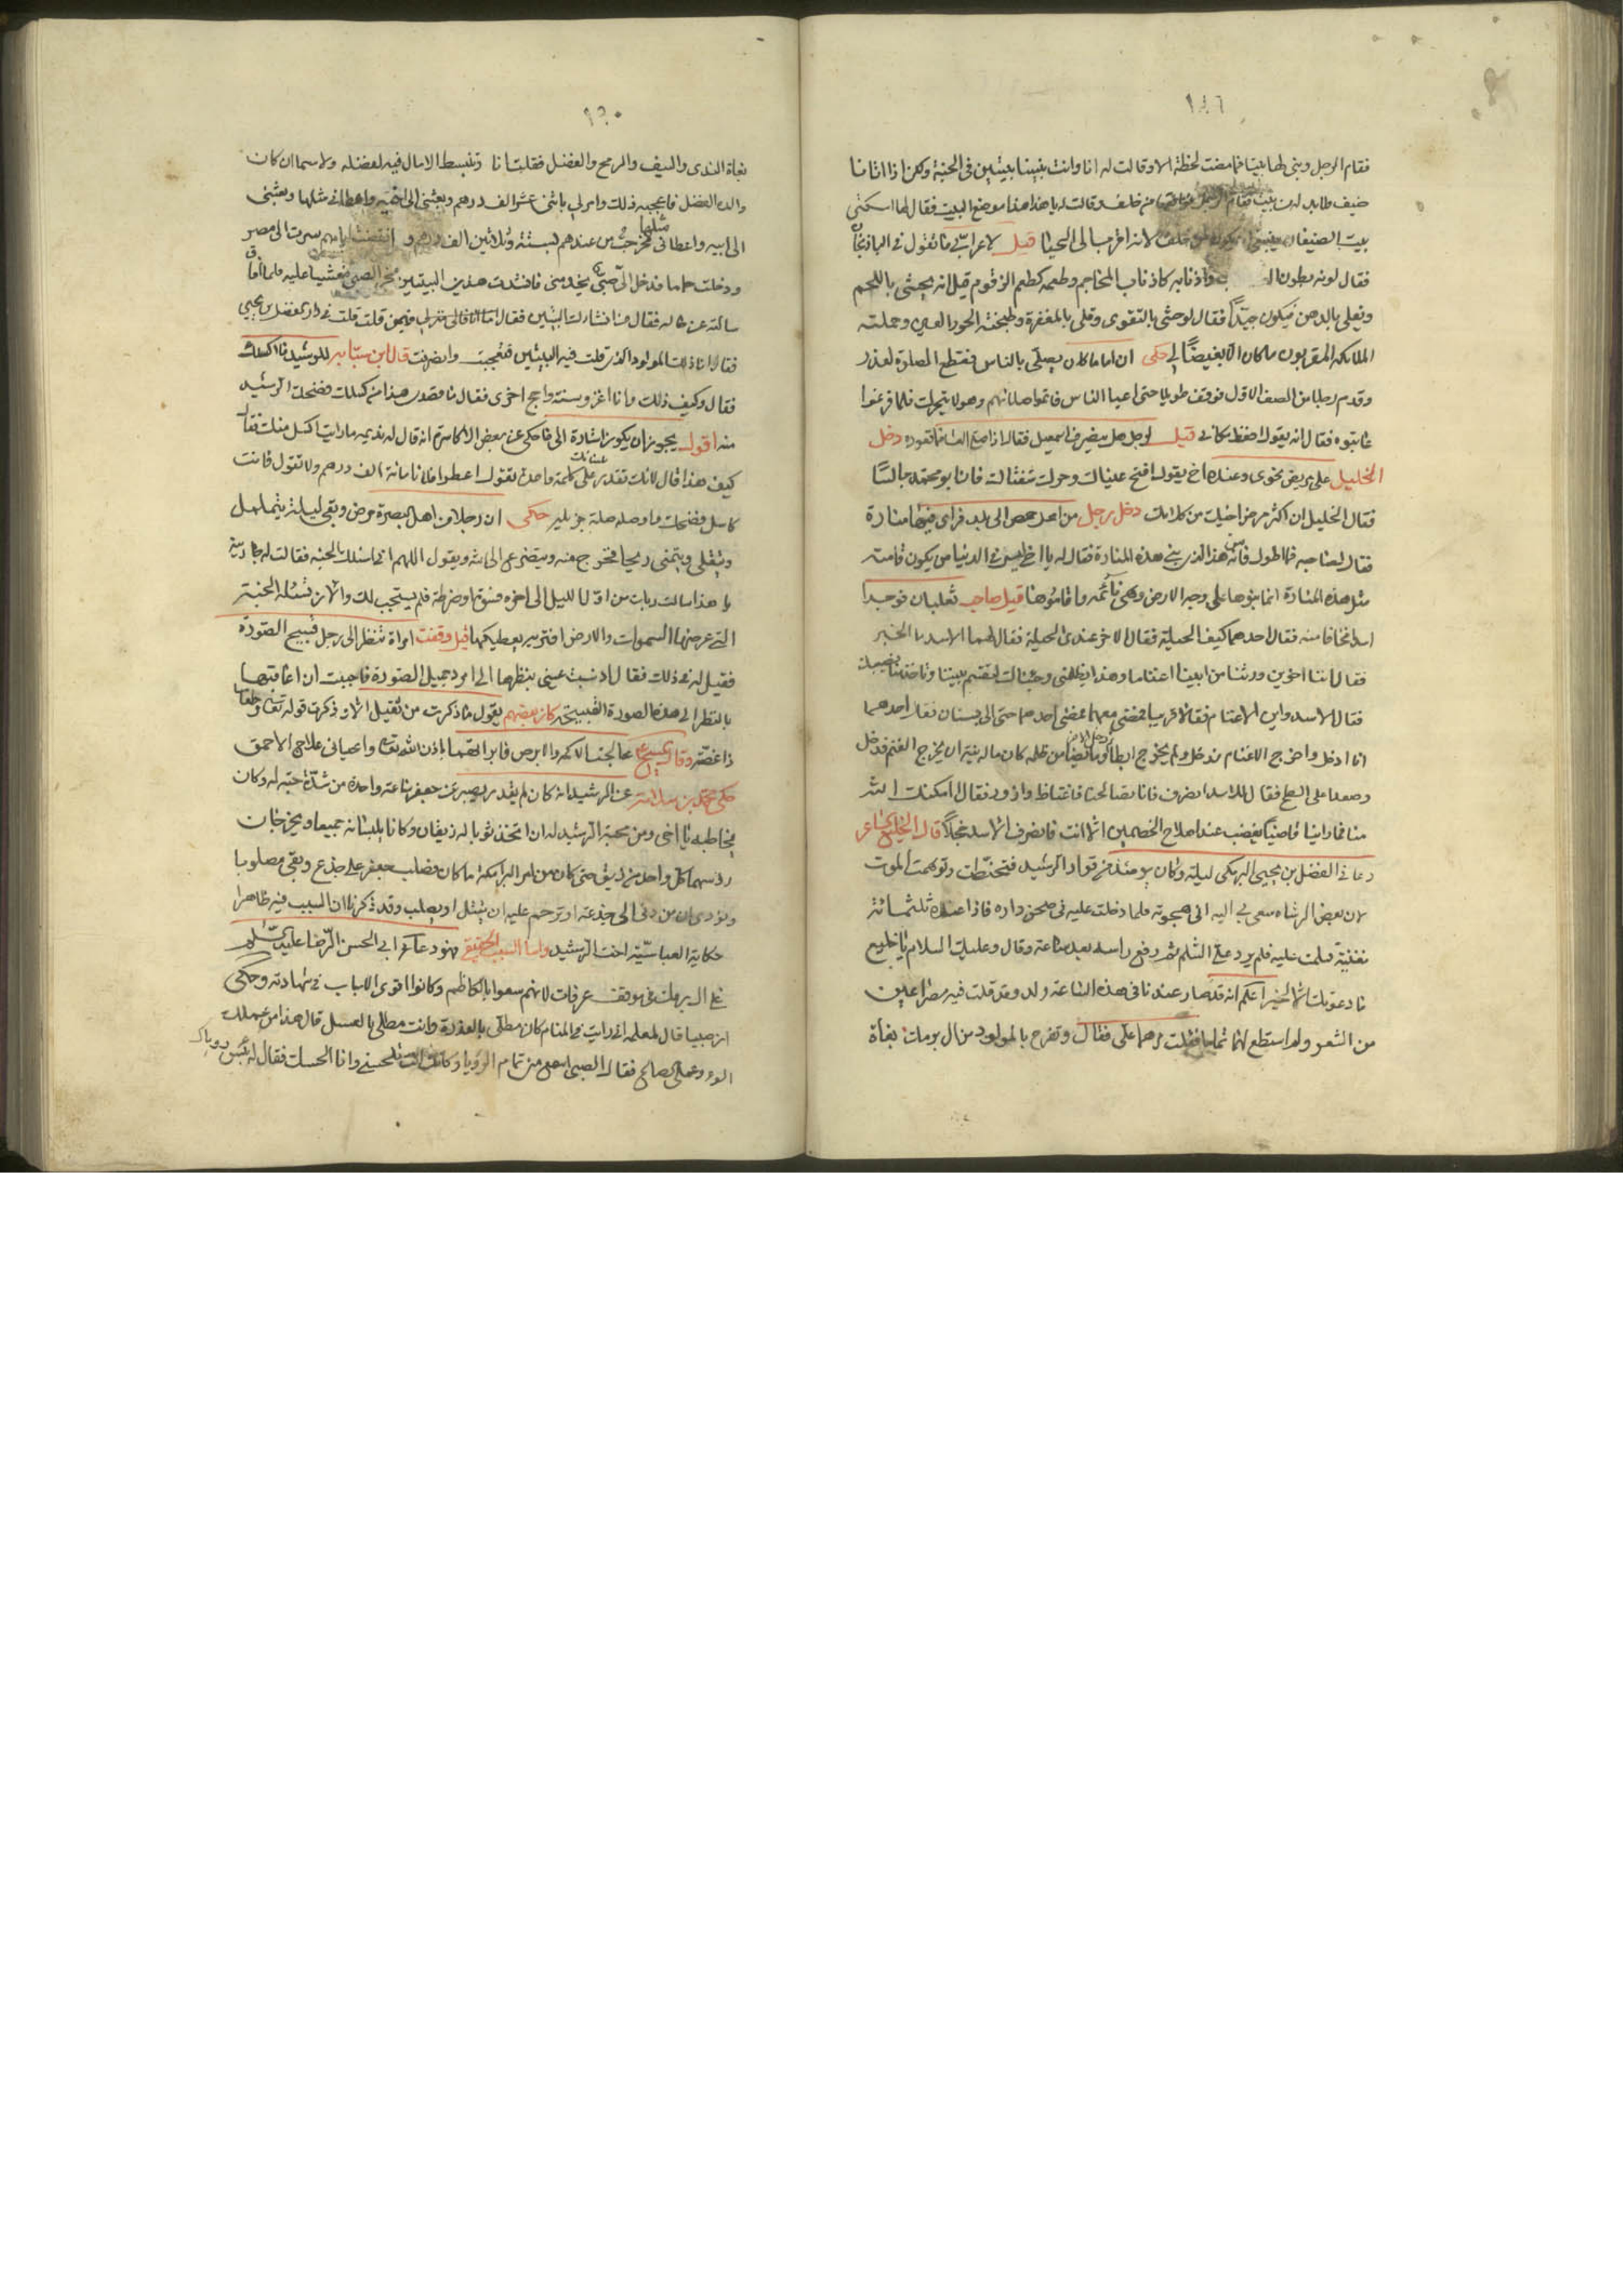 ١٤٦
فقام الرجل وبنى لها بيتا فما مضت لحظة الا وقالت له انا وانت بنينا بيتين في الجنة ولكن اذا اتانا
ضيف فقام الرجل من خلف وقالت له يا هذا هذا موضع البيت فقال لها اسكتي
بيت الضيفان ينبغي ان يكون من خلف لانه اقرب الى الحيا قيل لاعرابي ما تقول في الباذنجان
فقال لونه بطون واذنابه كاذناب المحاجم وطعمه كطعم الزقوم قيل انه يحشى باللحم
ويقلى بالدهن فيكون جيدا فقال لو حشي بالتقوى وقلي بالمغفرة وطبخته الحور العين وحملته
الملائكة المقربون ما كان الا بغيضا الي حكى ان اماما كان يصلي بالناس فقطع الصلوة لعذر
وقدم رجلا من الصف الاول فوقف طويلا حتى اعيا الناس فاتموا صلاتهم وهو لا يتحرك فلما فرغوا
عاتبوه فقال انه يقول احفظ مكاني قيل لرجل هل ينصرف اسمعيل فقال اذا صلى العشا فما قعوده دخل
الخليل على مريض نحوي وعنده اخ يقول افتح عيناك وحرك شفتاك فان ابو محمد جالسا
فقال الخليل ان اكثر مرض اخيك من كلامك دخل رجل من اهل حمص الى بلد فراى فيها منارة
فقال لصاحبه ما اطول قامة هذا الذي بنى هذه المنارة فقال له يا اخي ليس في الدنيا من يكون قامته
مثل هذه المنارة انما بنوها على وجه الارض وهي نائمة واقاموها قيل صاحب ثعلبان فوجدا
اسدا فخافا منه فقال احدهما كيف الحيلة فقال الاخر عندي الحيلة فقال لهما الاسد ما الخبر
فقالا اننا اخوين ورثنا من ابينا اغناما وهذا يظلمني وجئناك لتقسم بيننا وتاخذ نصيبك
فقال الاسد واين الاغنام فقالا قريبا فمضى معهما فمضى احدهما حتى الى بستان فقال احدهما
انا ادخل واخرج الاغنام فدخل ولم يخرج ابطا من ظله كان ماله نية ان يخرج الغنم فدخل
وصعدا على السطح فقالا للاسد انصرف فانا تصالحنا فاغتاظ وازور فقالا
منا فما راينا قاضيا يغضب عند اصلاح الخصمين الا انت فانصرف الاسد خجلا قال الخليع الشاعر
دعاني الفضل بن يحيى البرمكي ليلة وكان يومئذ من قواد الرشيد فتحنطت وتوهمت الموت
لان بعض الوشاة سعى بي اليه اني هجوته فلما دخلت عليه في صحن داره فاذا عنده ثلثمائة
مغنية فسلمت عليه فلم يرد علي السلام ثم رفع راسه بعد ساعة وقال وعليك السلام يا خليع
ما دعوتك الا لخير اعلم انه قد صار عندنا في هذه الساعة ولد وقد قلت فيه مصراعين
من الشعر ولم استطع لهما تماما فقلت هما على فقال وتفرح بالمولود من ال برمك بغاة

١٥٠
بغاة الندى والسيف والرمح والفضل فقلت انا وتنبسط الامال فيه لفضله ولا سيما ان كان
والده الفضل فاعجبه ذلك وامر لي باثني عشر الف درهم وبعثني الى اخيه واعطاني مثلها وبعثني
الى ابيه واعطاني مثلها فخرجت من عندهم بستة وثلاثين الف درهم وانقضت ايامهم سرت الى مصر
ودخلت حماما فدخل الي صبي يخدمني فانشدت هذين البيتين فخر الصبي مغشيا عليه فلما افاق
سالته عن حاله فقال من انشا لك البيتين
فقال انا ذلك المولود الذي قلت فيه البيتين فتعجبت وانصرفت قال ابن سيابه للرشيد ما اكسلك
فقال وكيف ذلك وانا اغزو سنة واحج اخرى فقال ما مقصودي هذا من كسلك فضحك الرشيد
منه اقول يجوز ان يكون اشارة الى ما حكي عن بعض الاكاسرة انه قال له نديمه ما رايت اكسل منك فقال
كيف هذا قال لانك تقدر على كلمة واحدة تقول اعطوا فلانا مائة الف درهم ولا تقول فانت
كاسل فضحك وصله صلة جزيله حكى ان رجلا من اهل البصرة مرض وبقي ليلة يتململ
ويتقلى ويتمنى ريحا فخرج منه ويتضرع الى الله ويقول اللهم اني اسئلك الجنة فقالت له جاريته
يا هذا سالت ربك من اول الليل الى اخره فسوة او ضرطة فلم يستجب لك والان تسئله الجنة
التي عرضها السموات والارض افتريه يعطيكها قيل وقفت امراة تنظر الى رجل قبيح الصورة
فقيل لها في ذلك فقال اذنبت عيني بنظرها الى امرد جميل الصورة فاحببت ان اعاقبها
بالنظر الى هذه الصورة القبيحة كان بعضهم يقول ما ذكرت من ثقيل الا وذكرت قوله تعالى وطعاما
ذا غصة وقال المسيح ع عالجت الاكمه والابرص فابراتهما باذن الله تعالى واعياني علاج الاحمق
حكى محمد بن عبد الله عن الرشيد انه كان لم يقدر يصبر عن جعفر ساعة واحدة من شدة حبه له وكان
يخاطبه يا اخي ومن محبة الرشيد له ان اتخذ ثوبا له زيقان وكانا يلبسانه جميعا ويخرجان
رؤسهما كل واحد من زيق حتى كان من امر البرامكة ما كان فصلب جعفر على جذع وبقي مصلوبا
ونودي ان من دنى الى جذعه او ترحم عليه ان يقتل او يصلب وقد ذكرنا ان السبب فيه ظاهرا
حكاية العباسية اخت الرشيد واما السبب الحقيقي فهو دعاء ابي الحسن الرضا عليه السلم
على ال برمك في موقف عرفات لانهم سعوا بالكاظم وكانوا اقوى الاسباب في شهادته وحكي
ان صبيا قال لمعلمه اني رايت في المنام كان مطلي بالعذرة وانت مطلي بالعسل قال هذا من عملك
وعملي صالح فقال الصبي اسمع من تمام الرؤيا وكانت تلحسني وانا الحسك فقال له بئس رؤياك